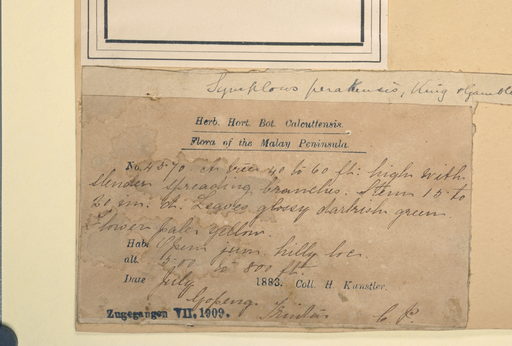 Symplocos perakensis, King & Gamble
Herb. Hort. Bot. Calcuttensis.
Flora of the Malay Peninsula.
No. 4570. A tree 40 to 60 ft. high with
slender spreading branches. Stem 15 to
20 in. d. Leaves glossy darkish green.
Flower pale yellow.
Hab. Open jung. hilly loc.
alt. 500 to 800 ft.
Date July 1883. Coll. H. Kunstler.
Gopeng. Kinta.
Zugegangen VII, 1909.